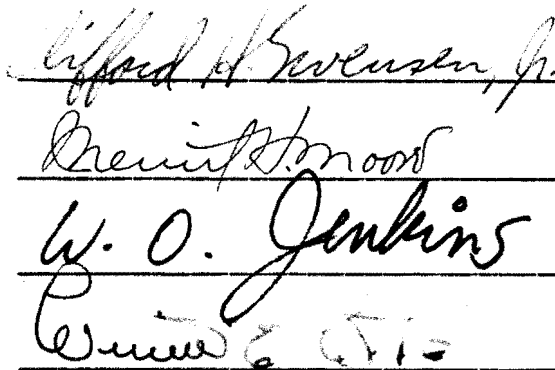 Clifford H. Swensen, Jr.
Merrit H. Moore
W. O. Jenkins
E